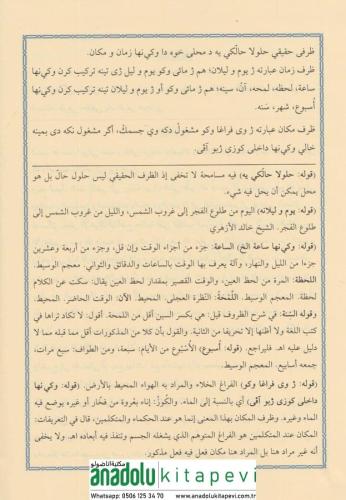 ظرفى حقيقي حلولا حالّكي يه د محلى خوه دا وكي‌نها زمان و مكان.
ظرف زمان عبارته ژ يوم و ليلان؛ هم ژ مائى وكو يوم و ليل ژى تينه تركيب كرن وكي‌نها
ساعة، لحظه، لمحه، آنْ، سيته؛ هم ژ مائى وكو أو ژ يوم و ليلان تينه تركيب كرن وكي‌نها
أُسبوع، شهر، سَنه.
ظرف مكان عبارته ژ وى فراغا وكو مشغولْ دكه وي جسمكْ، اگر مشغول نكه دى بمينه
خالي وكي‌نها داخلى كوزى ژبو آڤى.
(قوله: حلولا حالّكي يه) فيه مسامحة لا تخفى إذ الظرف الحقيقي ليس حلول حالّ بل هو
محل يمكن أن يحل فيه شيء.
(قوله: يوم و ليلانه) اليوم من طلوع الفجر إلى غروب الشمس، والليل من غروب الشمس إلى
طلوع الفجر. الشيخ خالد الأزهري
(قوله: وكي‌نها ساعة الخ) الساعة: جزء من أجزاء الوقت وإن قل، وجزء من أربعة وعشرين
جزءا من الليل والنهار، وآلة يعرف بها الوقت بالساعات والدقائق والثواني. معجم الوسيط.
اللحظة: المرة من لحظ العين، والوقت القصير بمقدار لحظ العين يقال: سكت عن الكلام
لحظة. معجم الوسيط. اللَّمْحَةُ: النَّظرة العجلى. المحيط. الآن: الوقت الحاضر. المحيط.
وقوله السّتة: في شرح الظروف قيل: هي بكسر السين أقل من اللمحة. أقول: لا تكاد تراها في
كتب اللغة ولا أظنها إلا تحريفا من الثانية. والقول بأن كلا من المذكورات أقل مما قبله مما لا
دليل عليه اهـ. فليراجع. (قوله: أسبوع) الأُسْبُوع من الأيام: سبعة، ومن الطواف: سبع مرات،
جمعه أسابيع. المعجم الوسيط.
(قوله: ژ وى فراغا وكو) الفراغ الخلاء والمراد به الهواء المحيط بالأرض. (قوله: وكي‌نها
داخلى كوزى ژبو آڤى) أي بالنسبة إلى الماء. والكُوزُ: إناء بعروة من فخّار أو غيره يوضع فيه
الماء وغيره. وظرف المكان بهذا المعنى إنما هو عند الحكماء والمتكلمين، قال في التعريفات:
المكان عند المتكلمين هو الفراغ المتوهم الذي يشغله الجسم وتنفذ فيه أبعاده اهـ. ولا يخفى
أنه غير مراد هنا بل المراد هنا مكان فعل فيه فعل مذكور.
مكتبة اناضولو
anadolu kitapevi
Whatsapp: 0506 125 34 70 www.anadolukitapevi.com